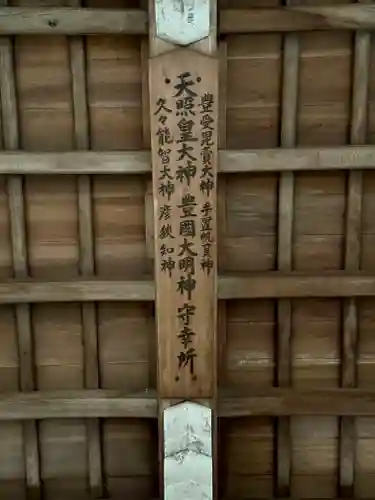 豐受毘賣大神 手置帆負神
天照皇大神 豐國大明神 守幸所
久々能智大神 彦狹知神